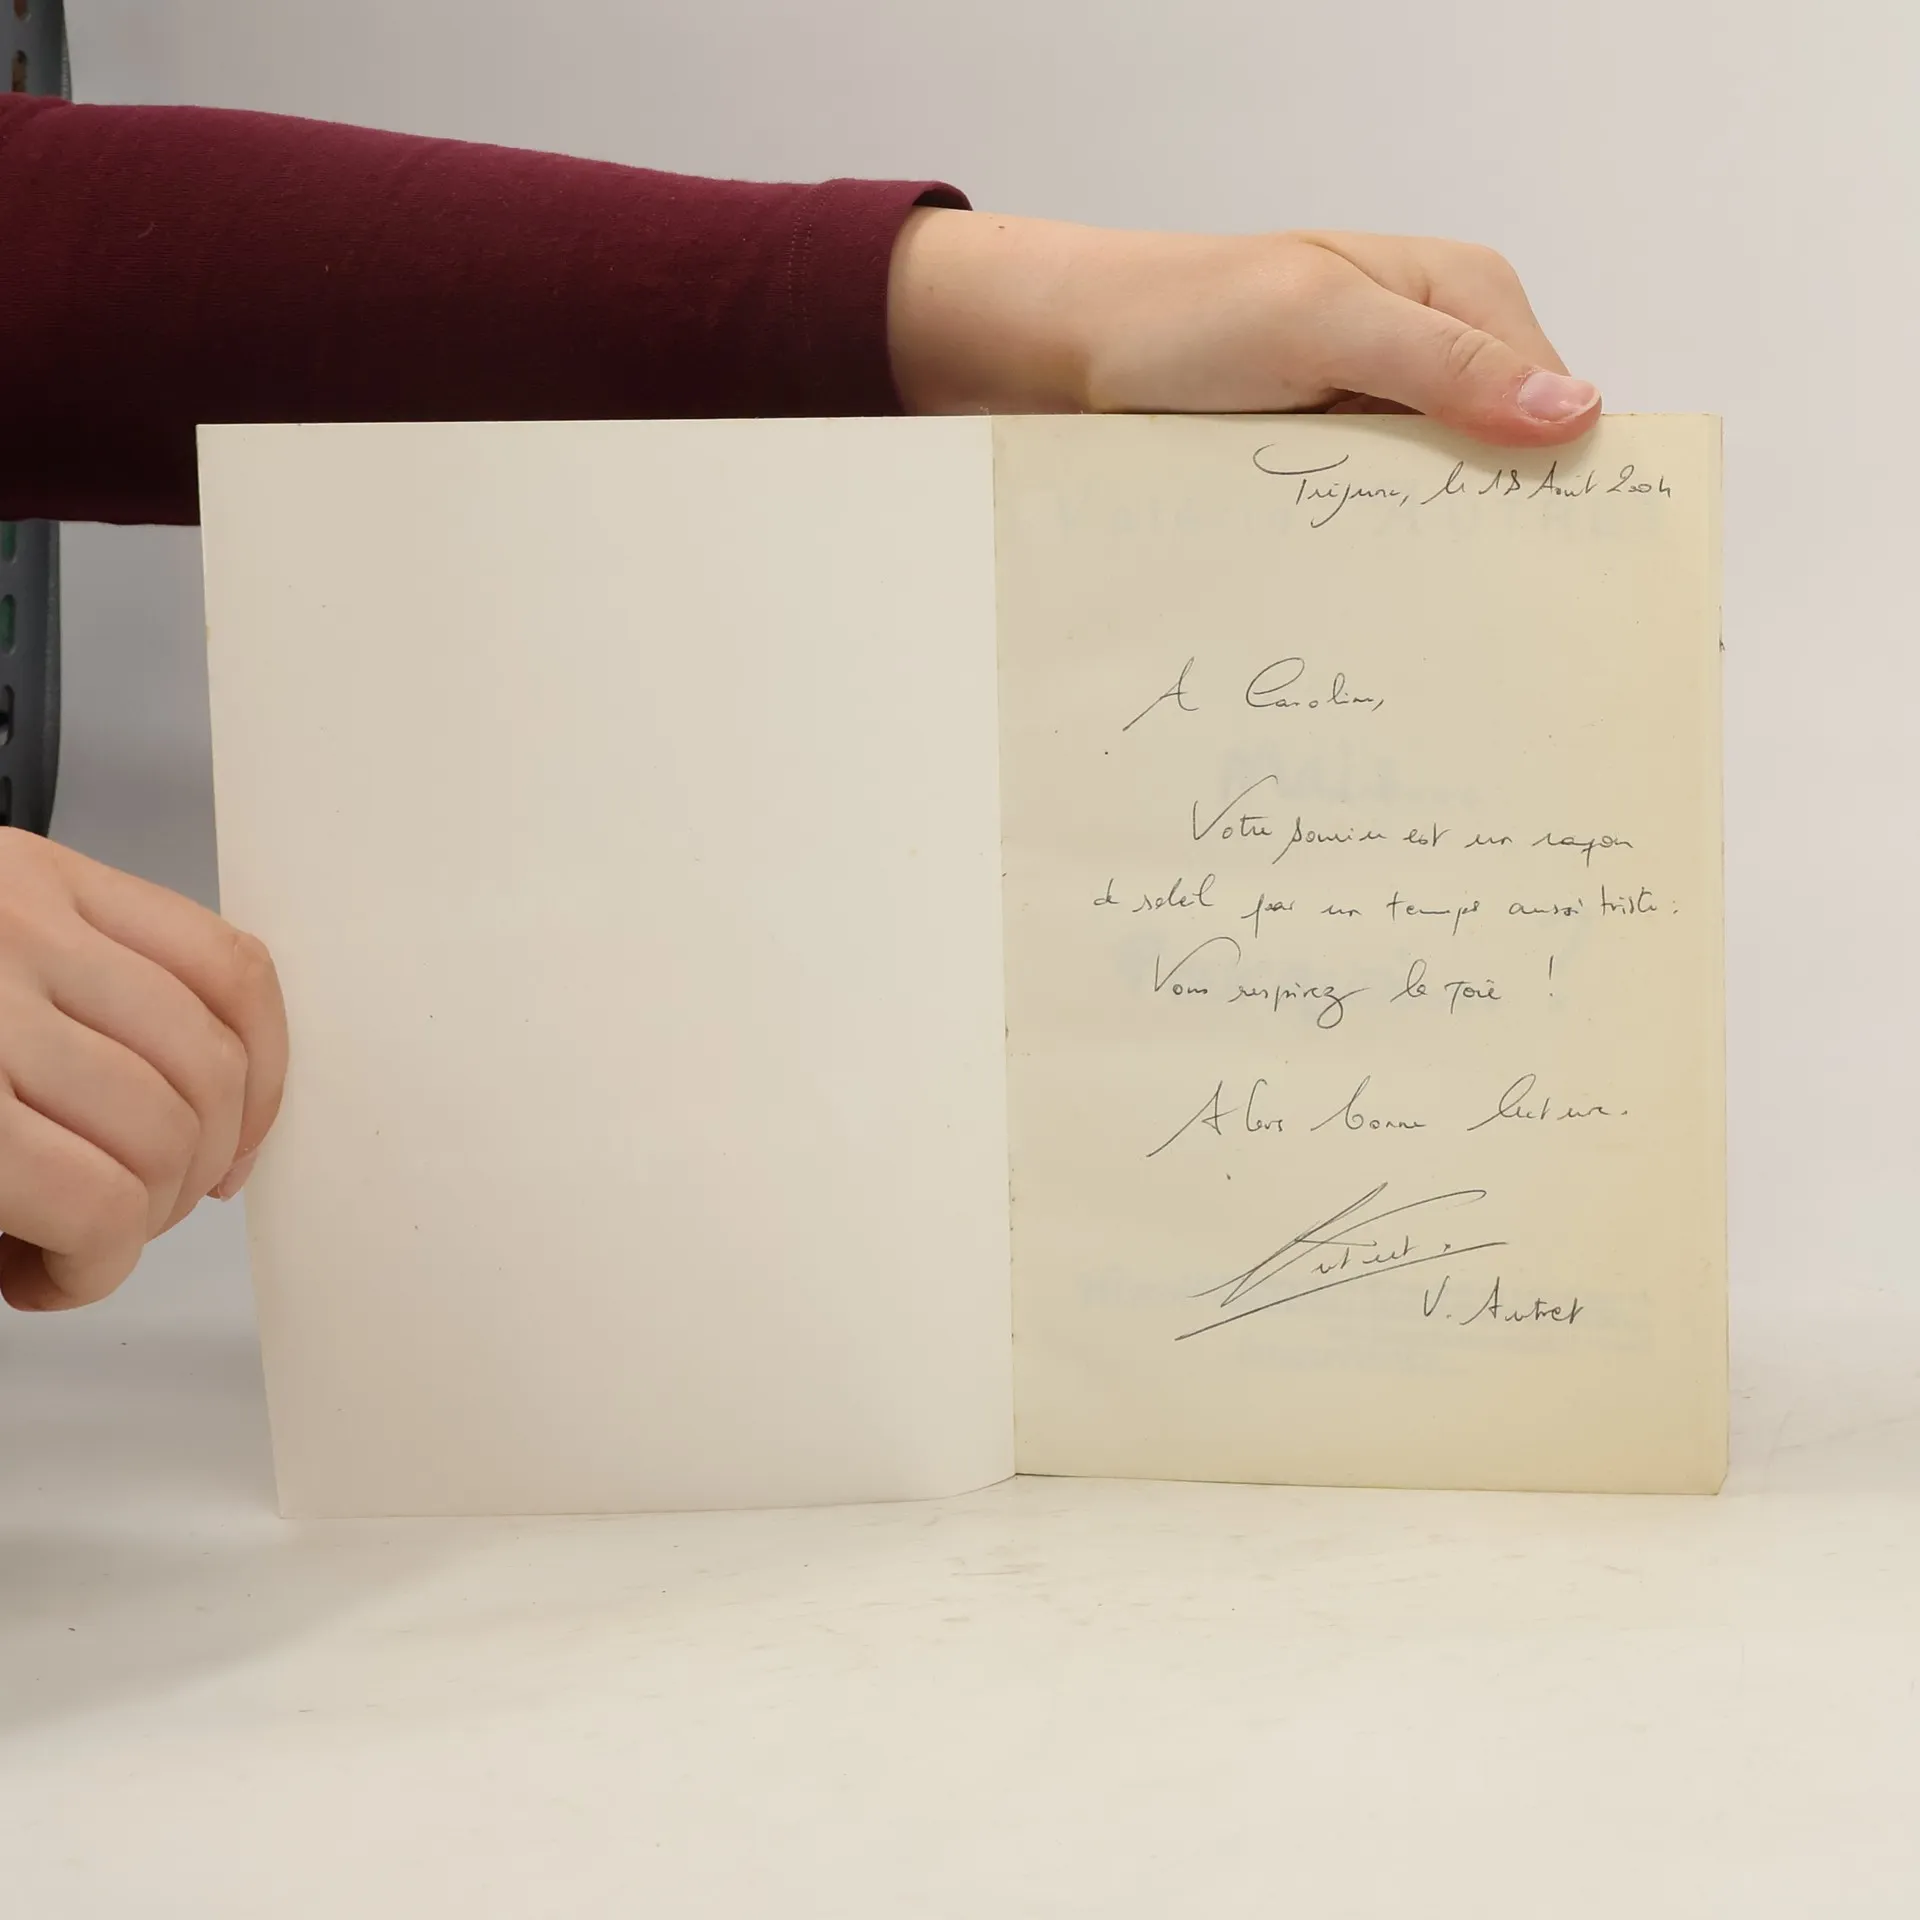 Trégunc, le 18 Août 2004
A Caroline,
Votre sourire est un rayon
de soleil par un temps aussi triste :
Vous respirez la joie !
Alors bonne lecture.
Autret.
V. Autret